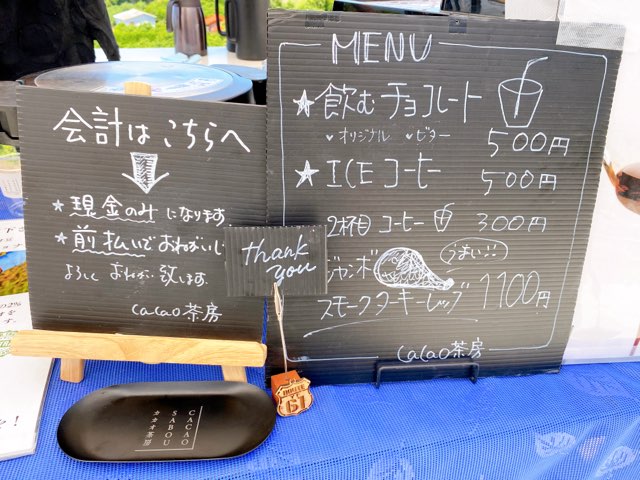 会計はこちらへ
★現金のみになります
★前払いでおねがいし
よろしくおねがい致します
cacao茶房
thank
you
MENU
★飲むチョコレート
♥オリジナル ♥ビター
500円
★ICEコーヒー 500円
2杯目コーヒー 300円
うまい!!
ジャンボ
スモークターキーレッグ 1100円
cacao茶房
CACAO
SABOU
カカオ茶房
61